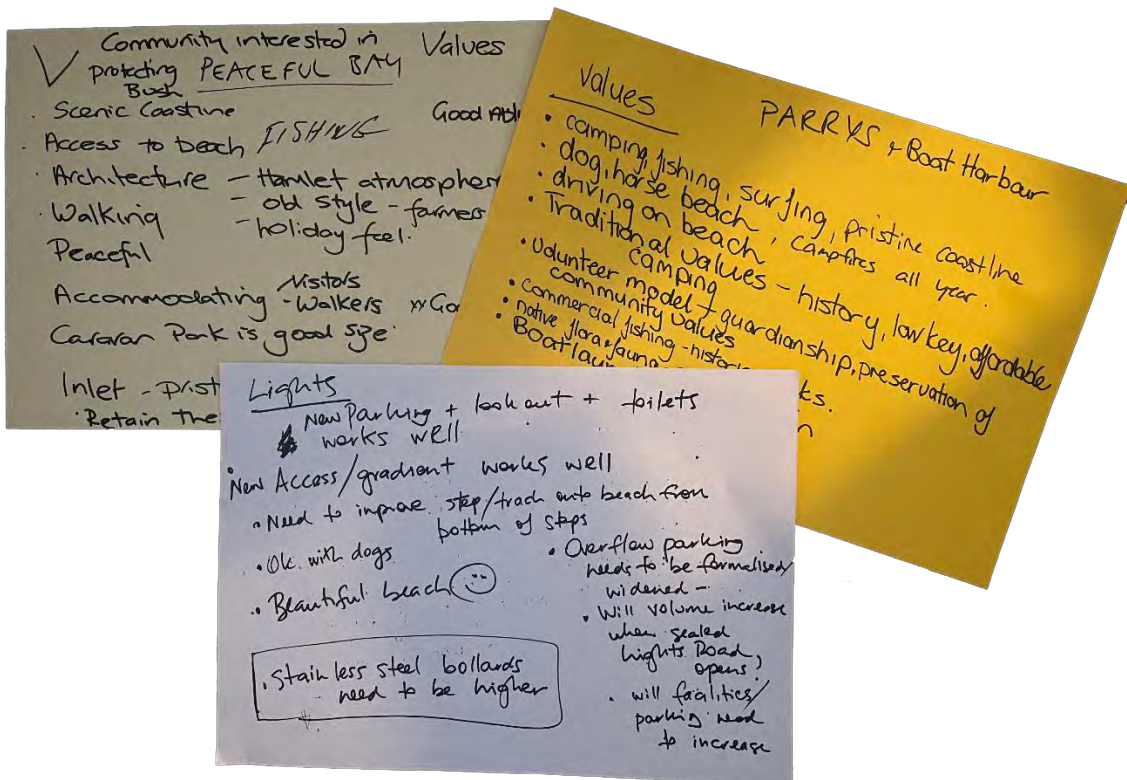 Community interested in
Values
protecting PEACEFUL BAY
Bush
Scenic Coastline
Good
Access to beach FISHING
Architecture - Hamlet atmospher
- old style - farmers
Walking
- holiday feel.
Peaceful
Visitors
Accommodating - Walkers
Caravan Park is good size
Inlet - prist
Retain The
Values
PARRYS & Boat Harbour
• camping, fishing, surfing, pristine coastline
• dog, horse beach
• driving on beach, campfires all year.
• Traditional values - history, low key, affordable
camping
• Volunteer model - guardianship, preservation of
community values
• commercial fishing - histori
• native flora & fauna
ks.
• Boat laun
n
Lights
New Parking + look out + toilets
works well
New Access/gradient works well
• Need to inprove step/track onto beach from
bottom of steps
• Ok with dogs
• Beautiful beach
• Stainless steel bollards
need to be higher
• Overflow parking
needs to be formalised/
widened -
• Will volume increase
when sealed
Lights Road
opens?
• will facalities/
parking need
to increase